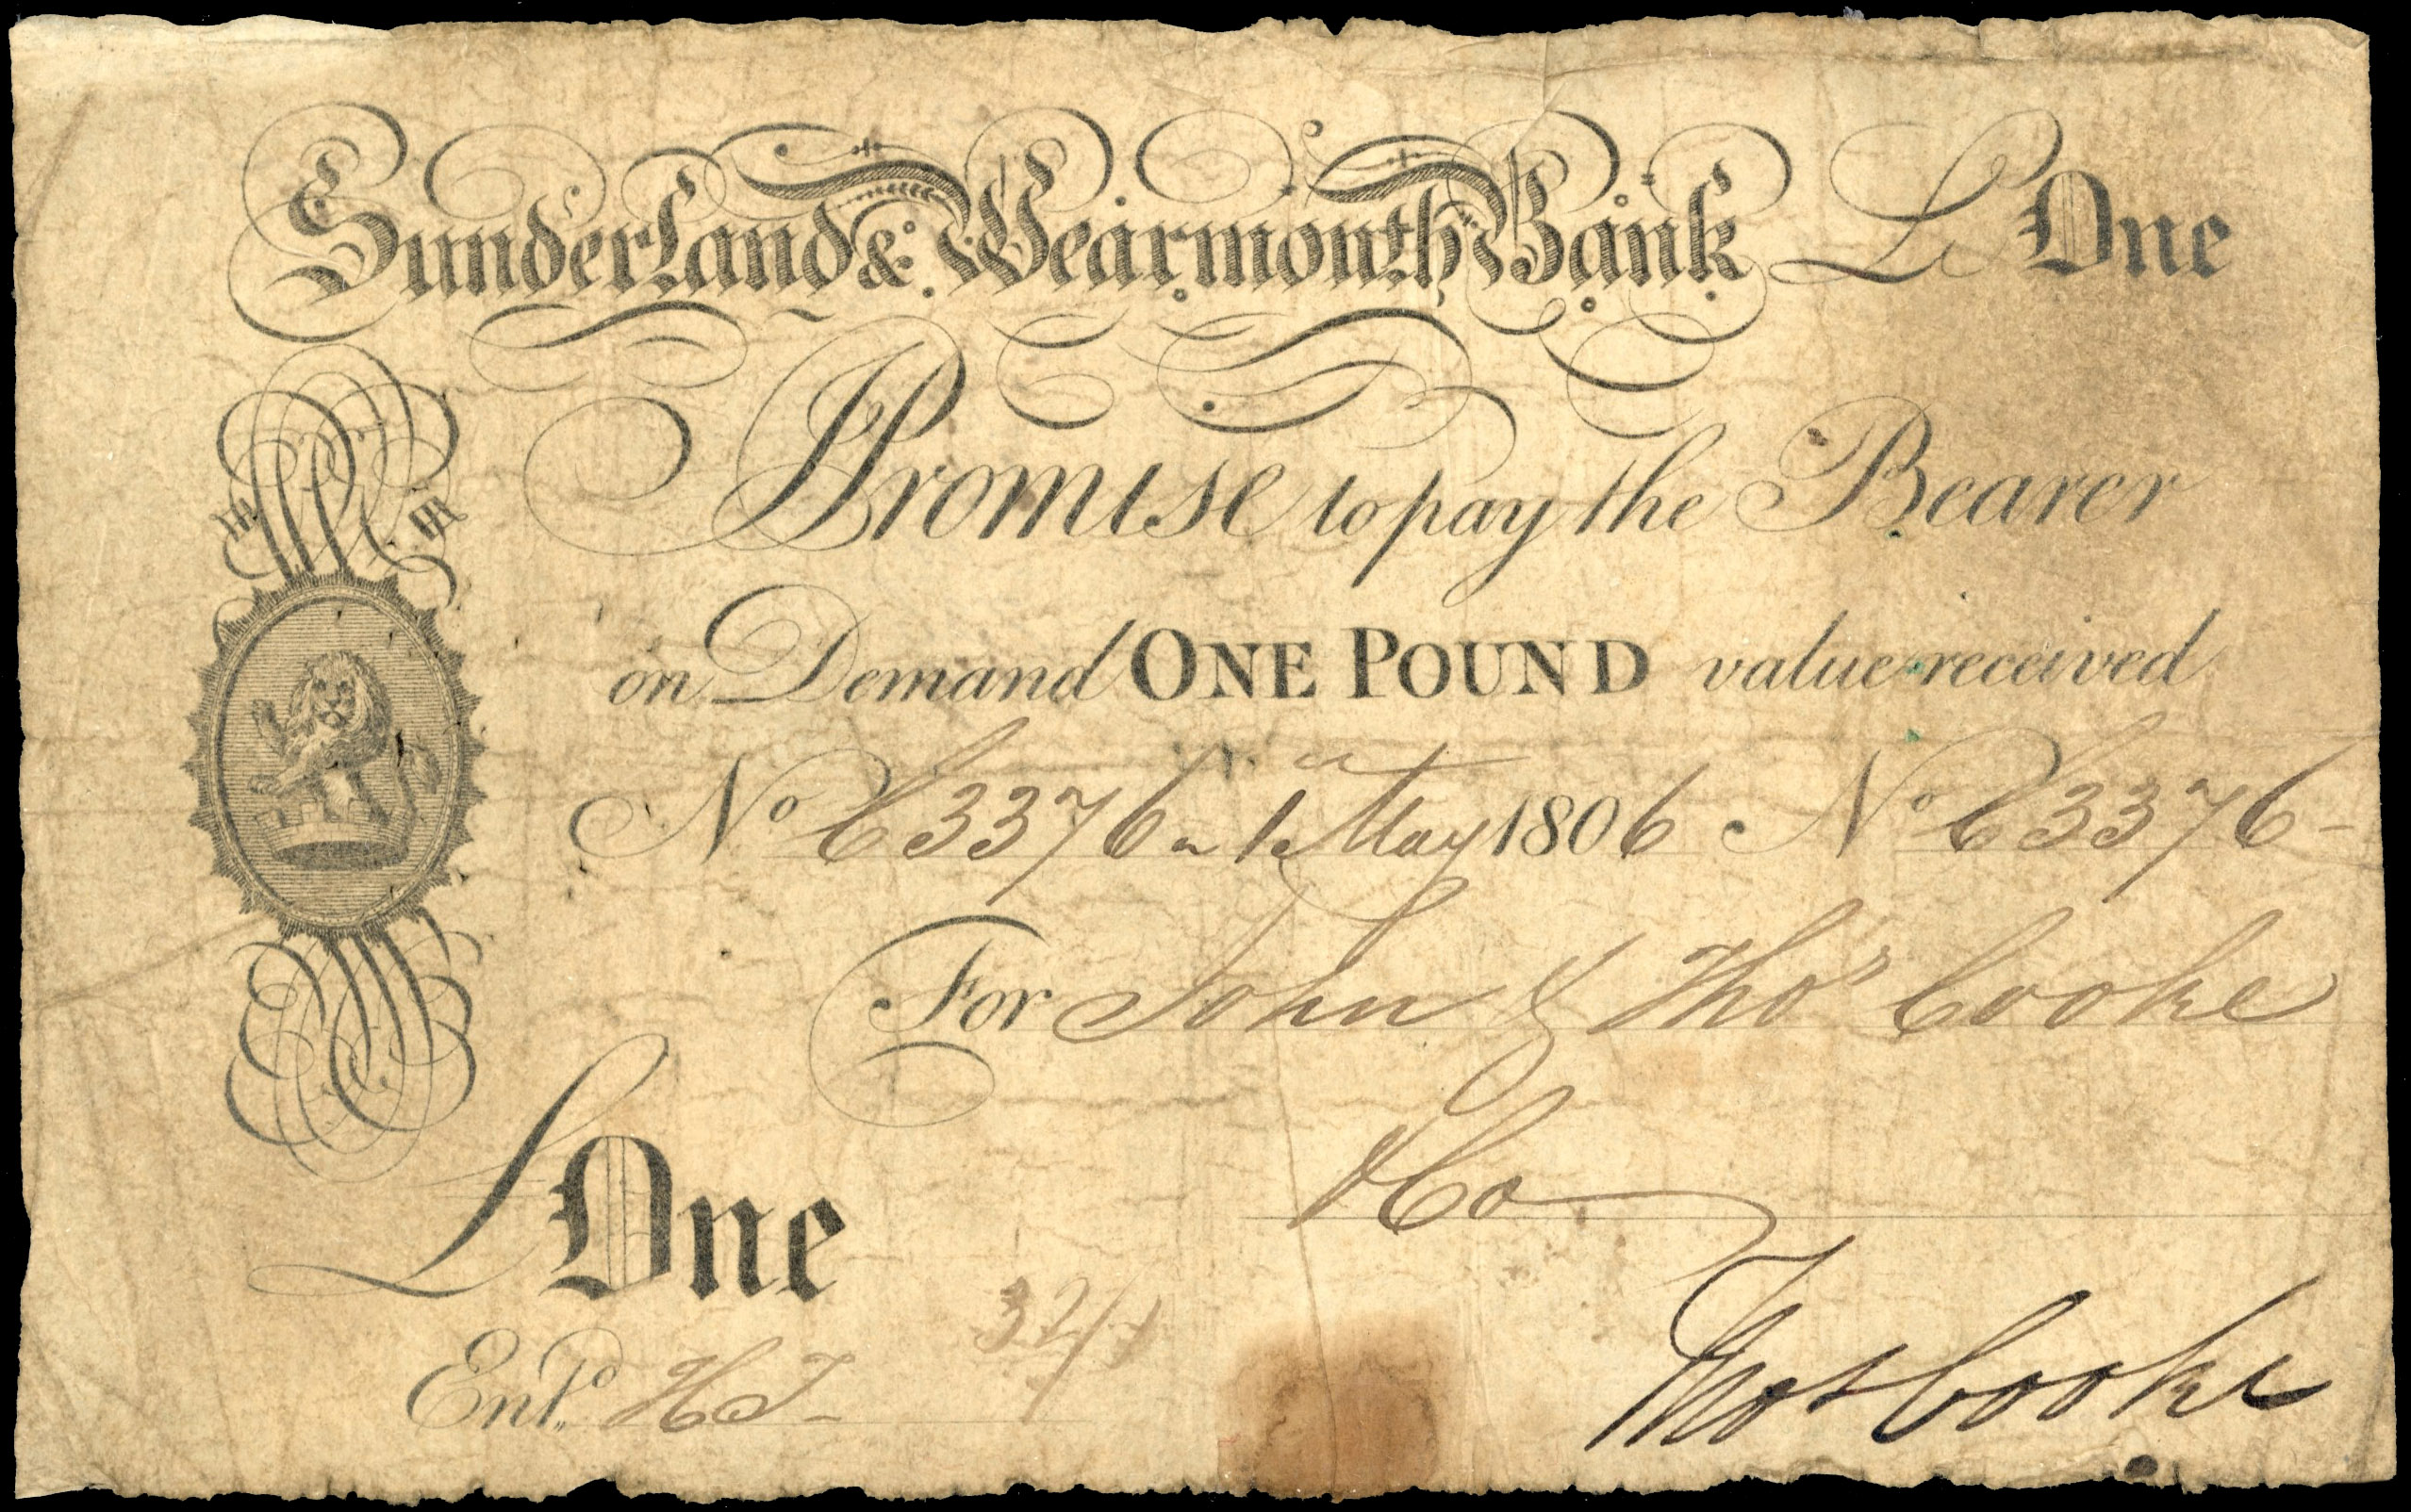 Sunderland & Wearmouth Bank £ One
I Promise to pay the Bearer
on Demand ONE POUND value received
No C3376 1 May 1806 No C3376
For John & Thos Cooke
& Co
£ One
Entd HJ
Thos Cooke